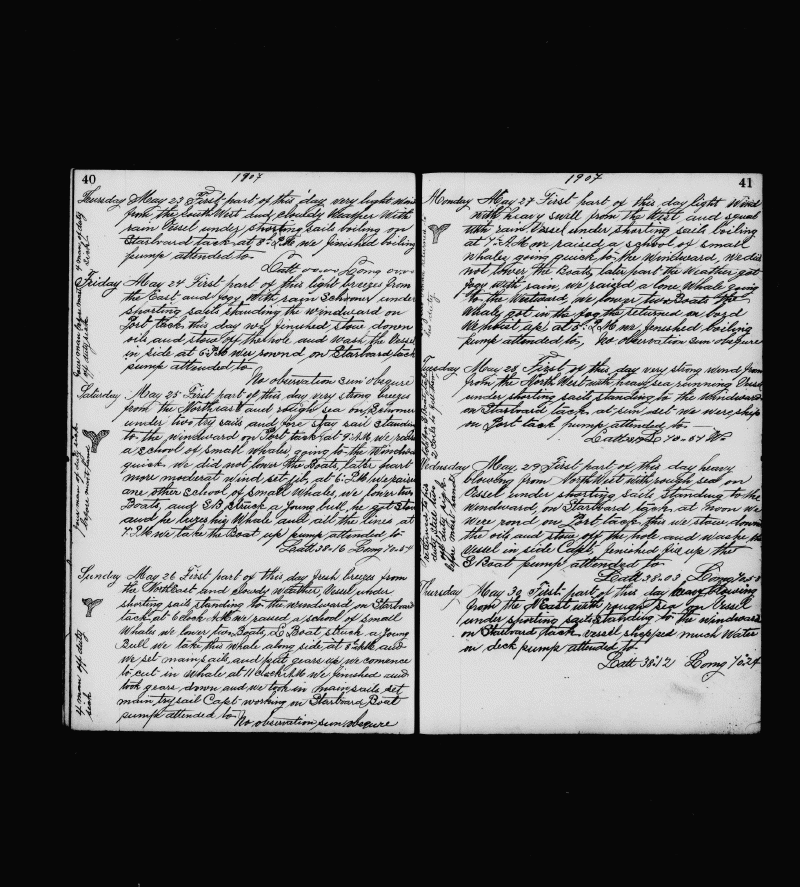 40
1907
Thursday May 23 First part of this day very light wind
from the South West and cloudy Weather With
rain Vessel under shorting Sails boiling on
Starbord tack at 8 P.M. we finished boiling
pump attended to
Latt 00=00 Long 00=00
Friday May 24 First part of this light breezes from
the East and fogy With rain Schooner under
shorting sails standing the windward on
Port tack this day we finished stow down
oils and stow of the hole and Wash the Vessel
in side at 6 P.M. We rownd on Starbard tack
pump attended to
No observation Sun obsqure
Saturday May 25 First part of this day very strong breezes
from the Northeast and rough sea on Schooner
under two try sails and fore stay sail standing
to the windward on Port tack at 9 A.M. we raised
a School of small whales going to the Windward
quick we did not lower the Boats, later part
more moderat wind set jib, at 6 P.M. we raised
one other School of small Whales, we lower two
Boats, and struck a Young bull, he got
and he lures his Whale and all the lines at
7 P.M. we take the Boat up pump attended to
Latt 38-16 Long 70-54
Sunday May 26 First part of this day fresh brezes from
the NorthEast and cloudy weather, Vessel under
shorting sails standing to the windward on Starbard
tack at 6 clock A.M. we raised a school of small
Whales we lower two Boats, L Boat struck a Young
Bull we take this whale along side at 8 A.M. and
we set mainsail and put gears up we comence
to cut in Whale at 11 clock A.M. we finished and
took gears down and we took in mainsaile set
main trysail Capt working on Starbord Boat
pump attended to No observation sun obsqure
4 man off duty
sick
four man off duty sick
before mast hand
four man before mast
off duty sick
4 man off duty
sick
41
1907
Monday May 27 First part of this day light Wind
with heavy swell from the West and squal
with rain Vessel under shorting sails boiling
at 7 A.M. we raised a school of small
Whales going quick to the Windward, we did
not lower the Boats, later part the Weather got
fogy with rain, we raised a lone Whale going
to the Windward, we lower two Boats the
Whale got in the fog the returned on bord
We hoist up at 5 P.M. we fenished boiling
pump attended to, No observation sun obsqure
Tuesday May 28 First of this day very strong wind from
from the North West with heavy sea running Vessel
under shorting sails standing to the Windward
on Starbord tack at sun set we were ship
on Port tack pump attended to
Latt Long 70-57 W
Wednesday May 29 First part of this day heavy
blowing from NorthWest with rough sea on
Vessel under shorting sails Standing to the
windward, on Starbord tack at noon we
were rond on Port tack, this we stow down
the oils and stow off the hole and washe the
vessel in side Capt. fenished fix up the
S Boat pump attended to
Latt 38.03 Long 70.58
Thursday May 30 First part of this day heavy blowing
from the NEast with rough sea on Vessel
under shorting sails Standing to the windward
on Starbord tack vessel shipped much Water
on deck pump attended to
Latt 38:12 Long 70:24
his duty
returned to his
duty
off duty sick
before mast hand